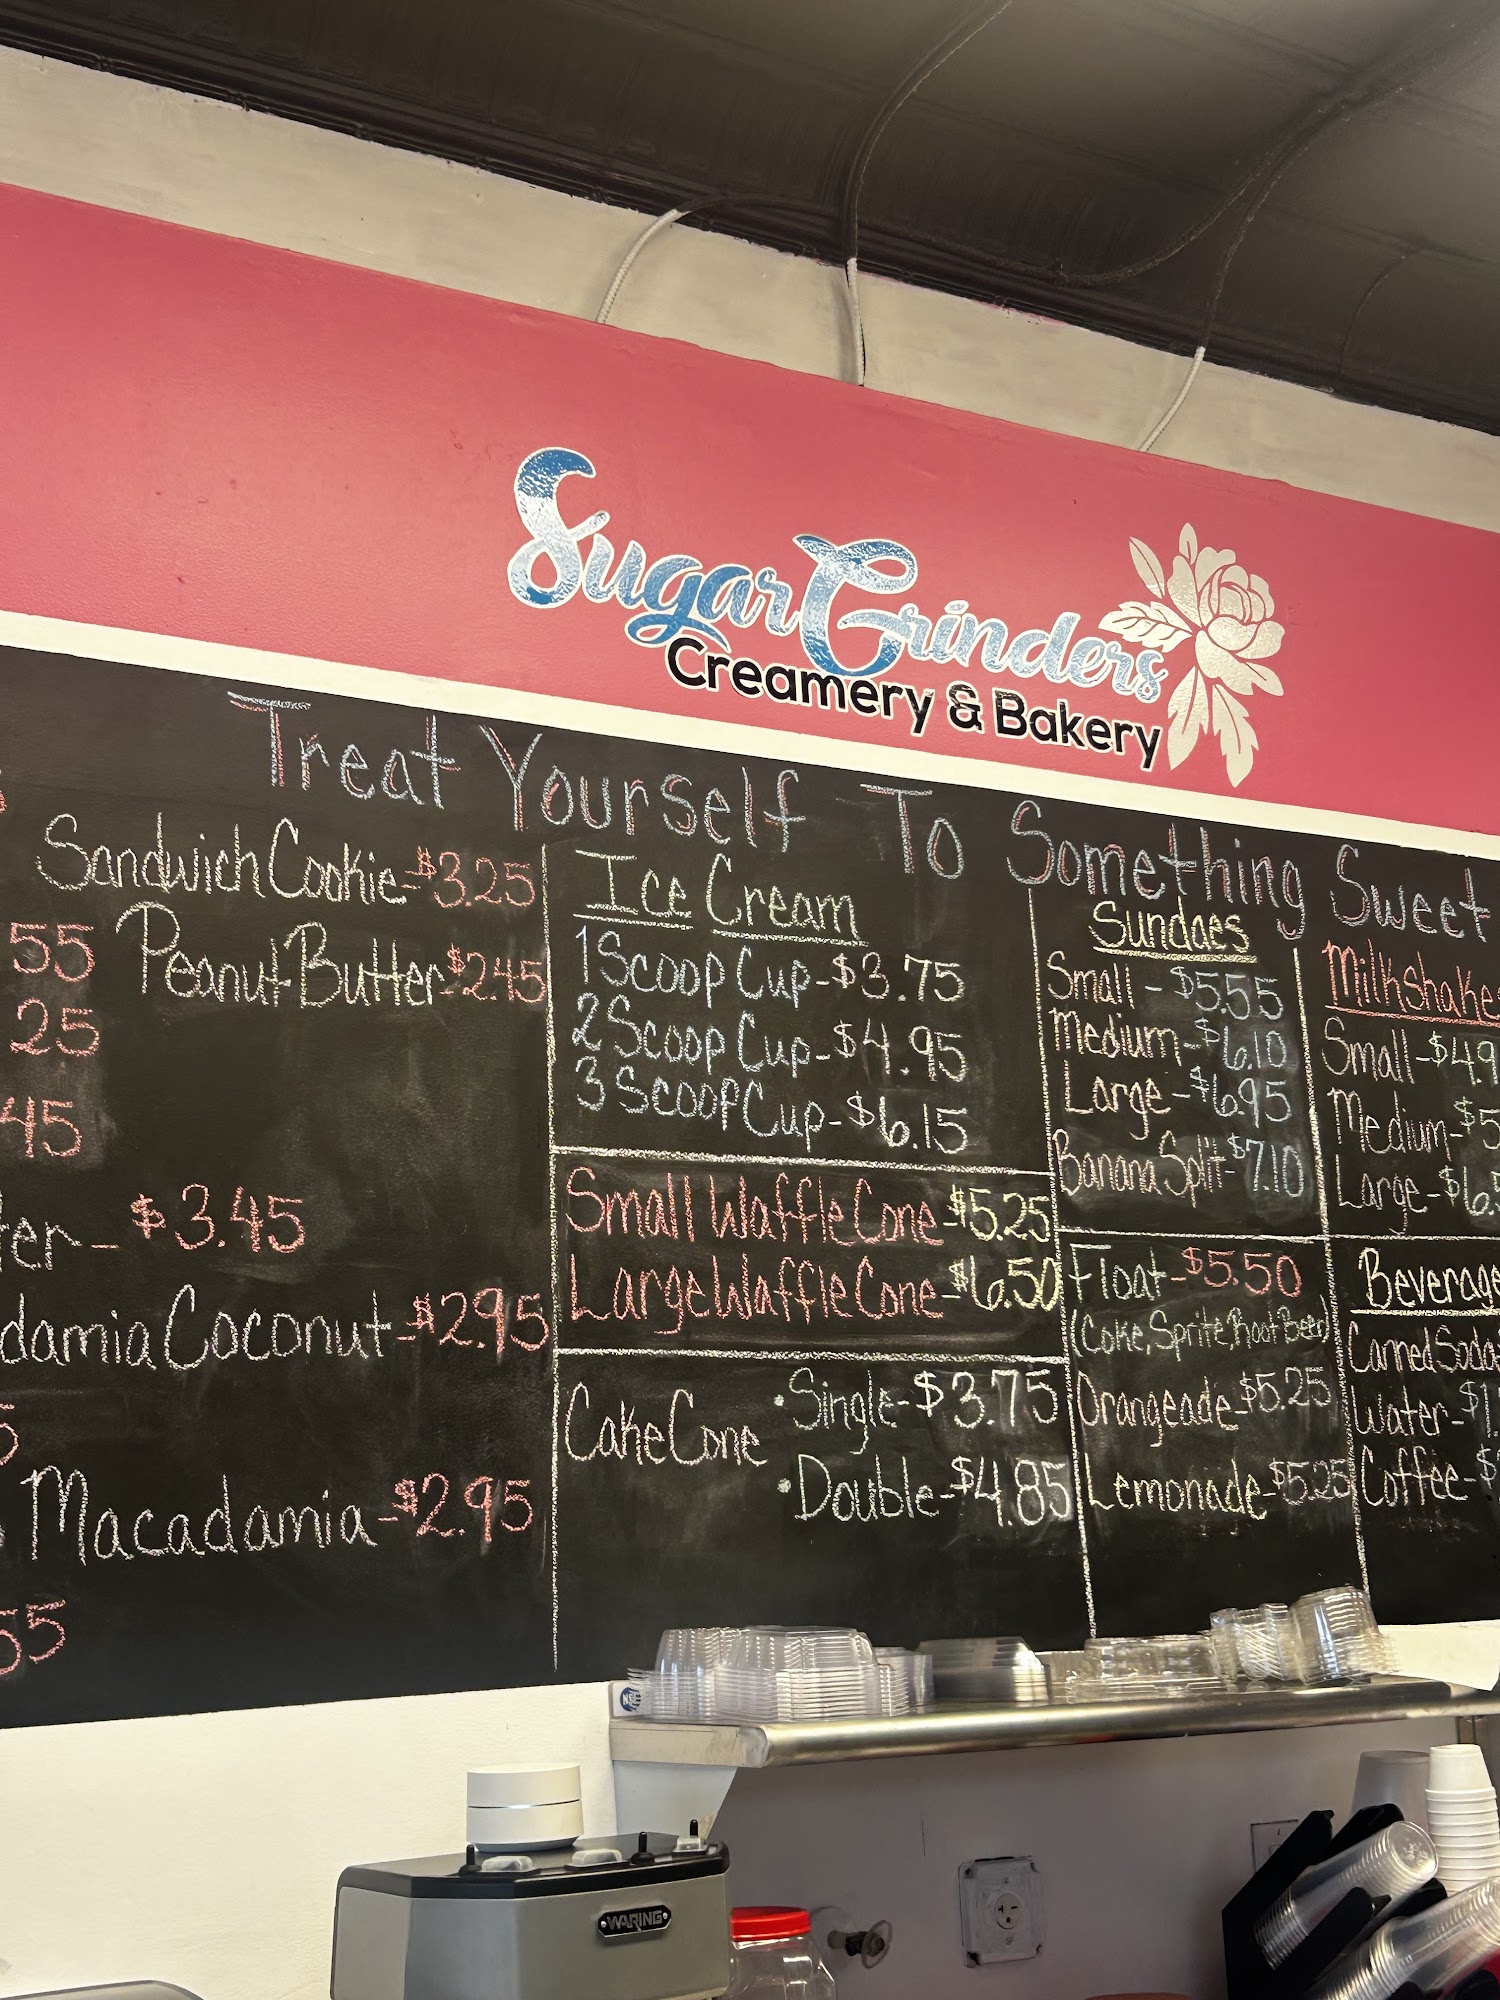 Sugar Grinders
Creamery & Bakery
Treat Yourself To Something Sweet
Sandwich Cookie-$3.25
55
Peanut Butter $2.45
25
45
$3.45
Coconut-$2.95
Macadamia-$2.95
55
Ice Cream
1 Scoop Cup-$3.75
2 Scoop Cup-$4.95
3 Scoop Cup-$6.15
Small Waffle Cone-$5.25
Large Waffle Cone-$6.50
Cake Cone
•Single-$3.75
•Double-$4.85
Sundaes
Small-$5.55
Medium-$6.10
Large-$6.95
Banana Split-$7.10
Float-$5.50
(Coke, Sprite, Root Beer)
Orangeade-$5.25
Lemonade-$5.25
Milkshake
Small-$4.9
Medium-$5
Large-$6.
Beverage
Canned Soda
Water-$1
Coffee-$
WARING